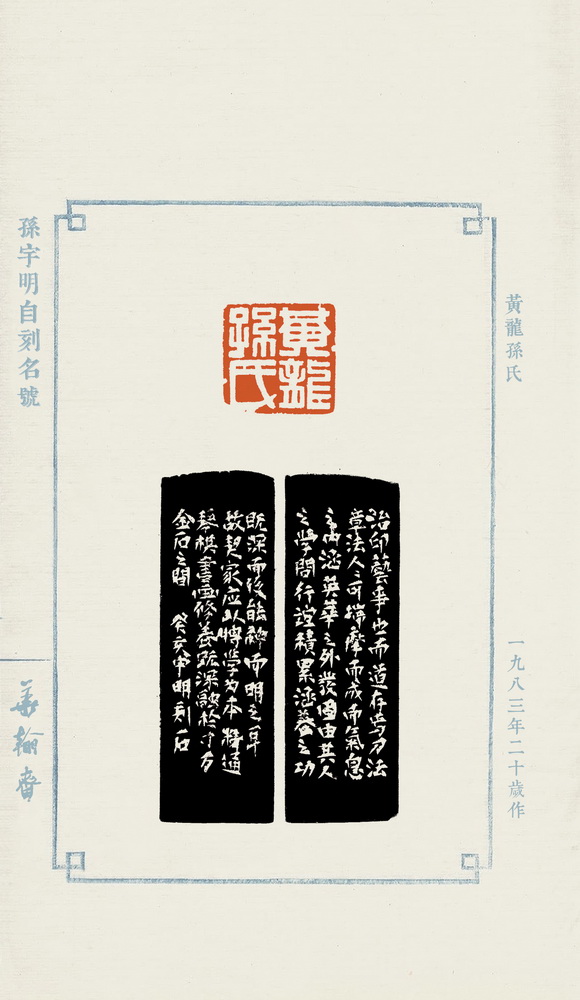 黃龍孫氏
一九八三年二十歲作
黃龍
孫氏
治印藝事也而道存焉刀法
章法人之可揣摩而成而氣息
之內涵英華之外發固由其人
之學問行誼積累涵養之功
既深而後能神而明之耳
故契家應以博學為本精通
琴棋書畫修養既深融於寸方
金石之間 癸亥宇明刻石
孫宇明自刻名號
翰齋